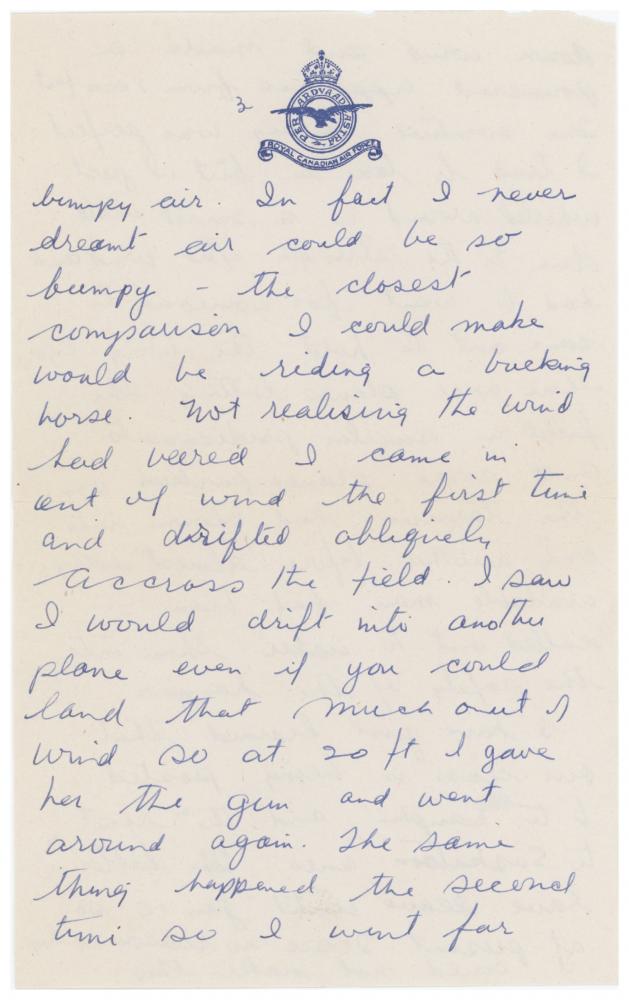 3
PER ARDVA AD ASTRA
ROYAL CANADIAN AIR FORCE
bumpy air. In fact I never
dreamt air could be so
bumpy - the closest
comparison I could make
would be riding a bucking
horse. Not realising the wind
had veered I came in
out of wind the first time
and drifted obliquely
accross the field. I saw
I would drift into another
plane even if you could
land that much out of
wind so at 20 ft I gave
her the gun and went
around again. The same
thing happened the second
time so I went far